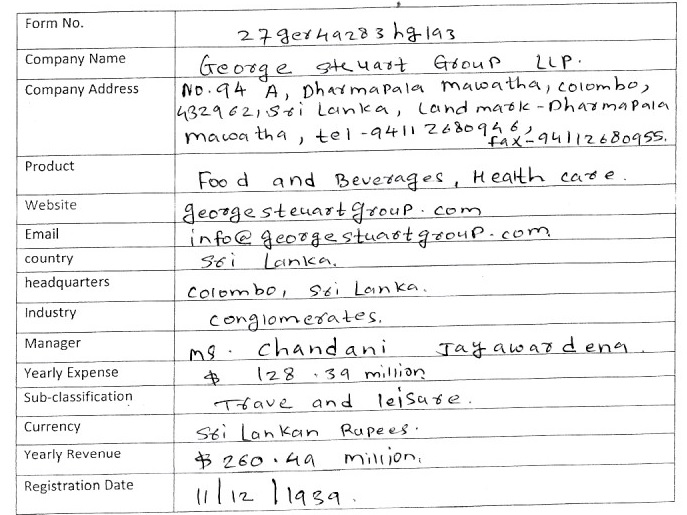 Form No. 27ger49283hg193
Company Name George steuart Group LLP.
Company Address No.94 A, Dharmapala mawatha, colombo,
432962, Sri Lanka, Land mark - Dharmapala
mawatha, tel -94112680946,
fax-94112680955.
Product Food and Beverages, Health care.
Website georgesteuartgroup.com
Email info@georgestuartgroup.com
country Sri Lanka.
headquarters colombo, Sri Lanka.
Industry conglomerates.
Manager ms. Chandani Jayawardena.
Yearly Expense $ 128.39 million
Sub-classification Trave and leisure.
Currency Sri Lankan Rupees.
Yearly Revenue $ 260.49 million.
Registration Date 11/12/1939.